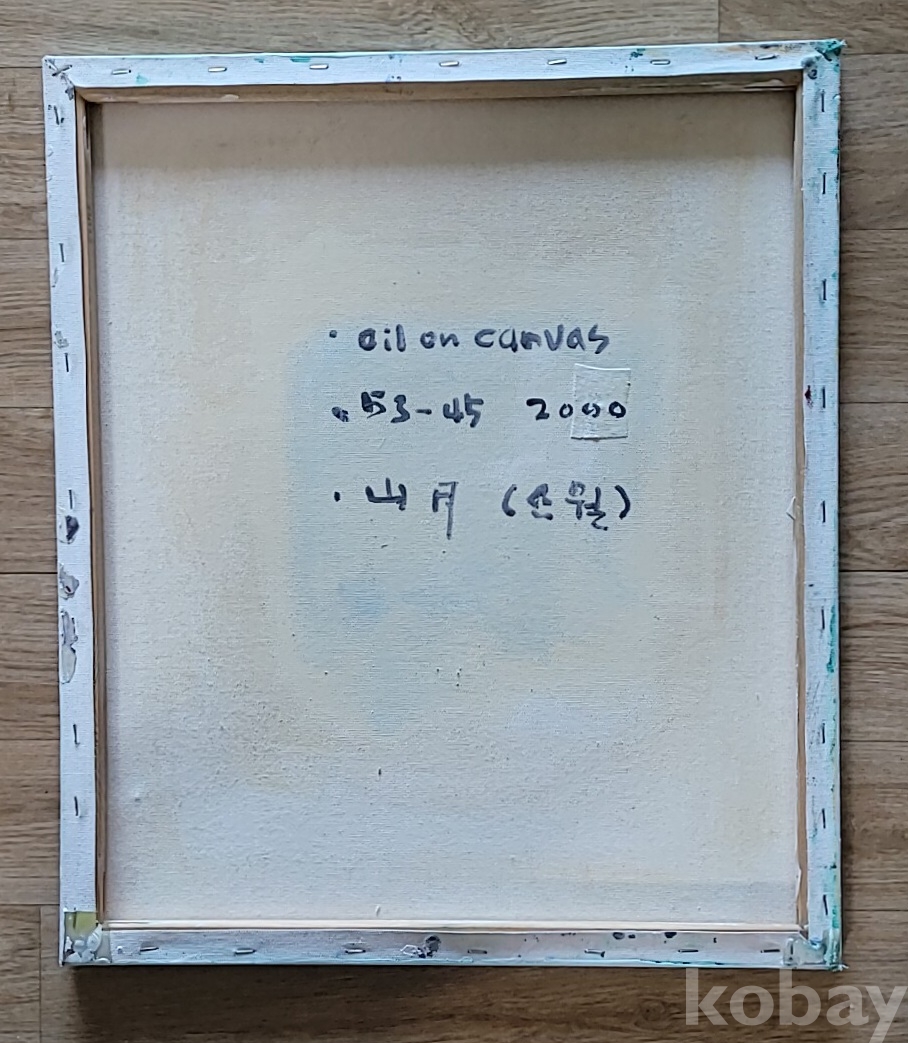 · oil on canvas
· 53-45 2000
· 山月 (산월)
kobay